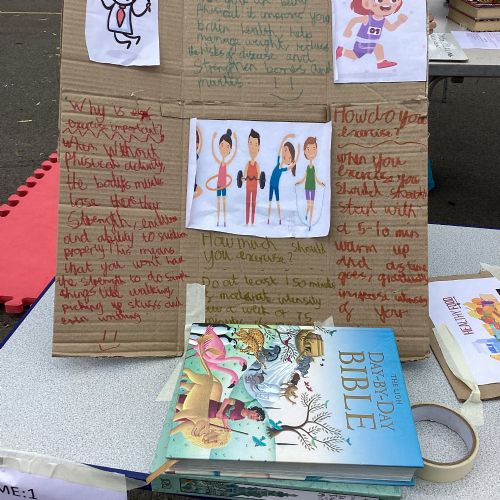 physical it improves your
brain health, help
manage weight, reduces
the risk of disease and
strengthen bones and
muscles !!
Why is
exercise important?
When Without
Physical activity,
the body's muscles
lose their
Strength,
and ability to
properly. This means
that you won't have
the strength to do simple
things like walking,
picking up stuff and
even
!!
How do you
exercise?
When you
exercise you
should
start with
a 5-10 mins
warm up
And as time
goes, gradually
increase intensity
of your
How much should
you exercise?
Do at least 150 minutes
moderate intensity
a week or 75
HEALTHY FOOD
THE LION
DAY-BY-DAY
BIBLE
ME:1